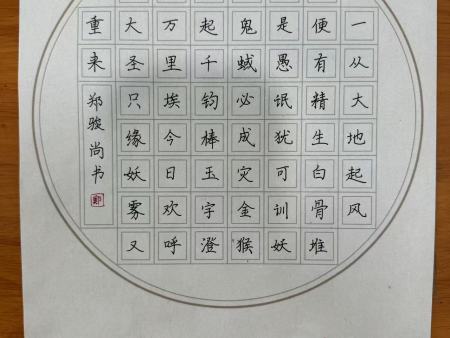 一从大地起风
便有精生白骨堆
是愚氓犹可训妖
鬼蜮必成灾金猴
起千钧棒玉宇澄
万里埃今日欢呼
大圣只缘妖雾又
重来
郑骏尚书
郑